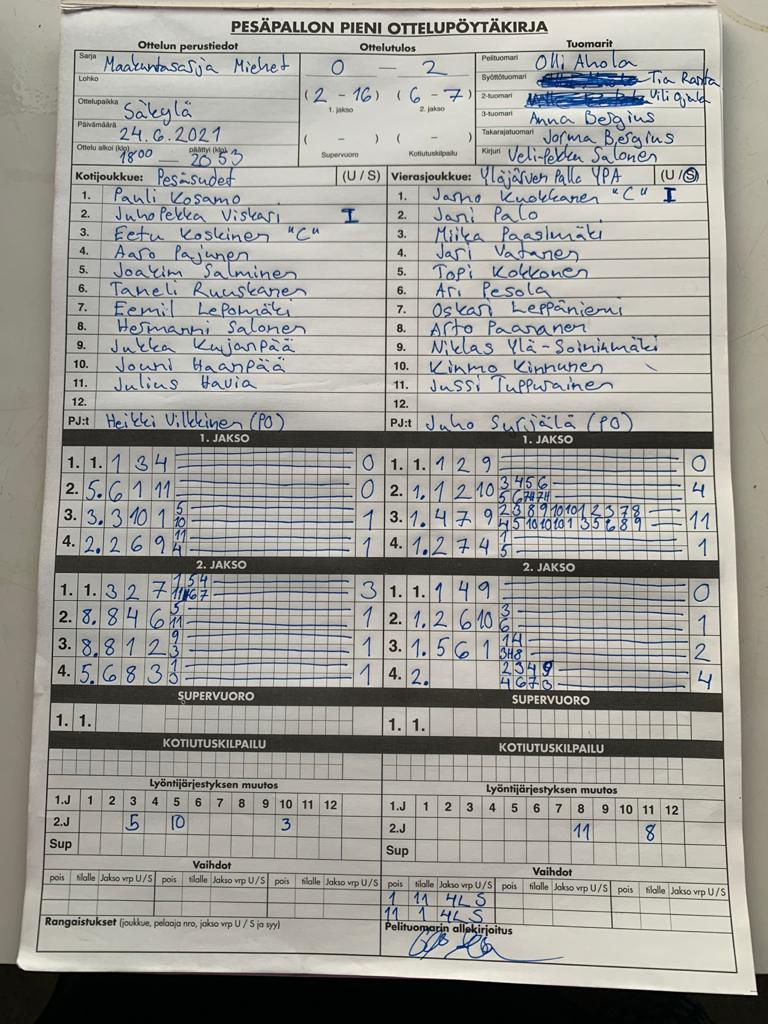 PESÄPALLON PIENI OTTELUPÖYTÄKIRJA
Ottelun perustiedot
Sarja Maakuntasarja Miehet
Lohko
Ottelupaikka Säkylä
Päivämäärä 24.6.2021
Ottelu alkoi (klo) 18 00 — päättyi (klo) 20 53
Ottelutulos
0 — 2
(2 - 16) (6 - 7)
1. jakso 2. jakso
( - ) ( - )
Supervuoro Kotiutuskilpailu
Tuomarit
Pelituomari Olli Ahola
Syöttötuomari Tia Ranta
2-tuomari Vili Ojala
3-tuomari Anna Bergius
Takarajatuomari Jorma Bergius
Kirjuri Veli-Pekka Salonen
Kotijoukkue: Pesäsudet (U / S)
1. Pauli Kosamo
2. JuhoPekka Viskari I
3. Eetu Koskinen "C"
4. Aaro Pajunen
5. Joakim Salminen
6. Taneli Ruuskanen
7. Eemil Lepomäki
8. Hermanni Salonen
9. Jukka Kujanpää
10. Jouni Haanpää
11. Julius Havia
12.
PJ:t Heikki Vilkkinen (PO)
Vierasjoukkue: Ylöjärven Pallo YPA (U / S)
1. Jarno Kuokkanen "C" I
2. Jani Palo
3. Miika Paasimäki
4. Jari Vatanen
5. Topi Kokkonen
6. Ari Pesola
7. Oskari Leppäniemi
8. Arto Paananen
9. Niklas Ylä-Soininmäki
10. Kimmo Kinnunen
11. Jussi Tuppurainen
12.
PJ:t Juho Surijälä (PO)
1. JAKSO
1. 1. 1 3 4 0
2. 5. 6 1 11 0
3. 3. 3 10 1 5 10 1
4. 2. 2 6 9 11 4 1
1. JAKSO
1. 1. 1 2 9 0
2. 1. 1 2 10 3 4 5 6 4
3. 1. 4 7 9 11
4. 1. 2 7 4 1 5 1
2. JAKSO
1. 1. 3 2 7 1 5 4 3
2. 8. 8 4 6 5 11 1
3. 8. 8 1 2 9 3 1
4. 5. 6 8 3 1
2. JAKSO
1. 1. 1 4 9 0
2. 1. 2 6 10 3 6 1
3. 1. 5 6 1 1 4 2
4. 2. 2 3 4 9 4 6 7 3 4
SUPERVUORO
1. 1.
SUPERVUORO
1. 1.
KOTIUTUSKILPAILU
KOTIUTUSKILPAILU
Lyöntijärjestyksen muutos
1.J 1 2 3 4 5 6 7 8 9 10 11 12
2.J 5 10 3
Sup
Lyöntijärjestyksen muutos
1.J 1 2 3 4 5 6 7 8 9 10 11 12
2.J 11 8
Sup
Vaihdot
pois tilalle Jakso vrp U/S pois tilalle Jakso vrp U/S pois tilalle Jakso vrp U/S
Vaihdot
pois tilalle Jakso vrp U/S pois tilalle Jakso vrp U/S pois tilalle Jakso vrp U/S
1 11 4L S
11 1 4L S
Rangaistukset (joukkue, pelaaja nro, jakso vrp U / S ja syy)
Pelituomarin allekirjoitus